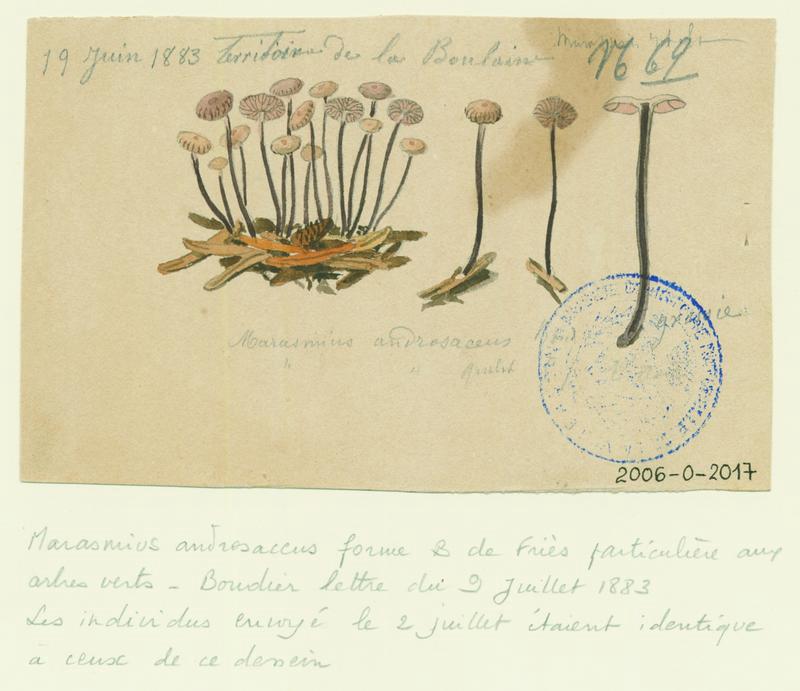 19 Juin 1883 Territoire de la Boulaine
N 69
Marasmius androsaceus
" " Quelet
grossie
2006-0-2017
Marasmius androsaceus forme B de Friès particulière aux
arbres verts - Boudier lettre du 9 Juillet 1883
Les individus envoyé le 2 juillet étaient identique
à ceux de ce dessein